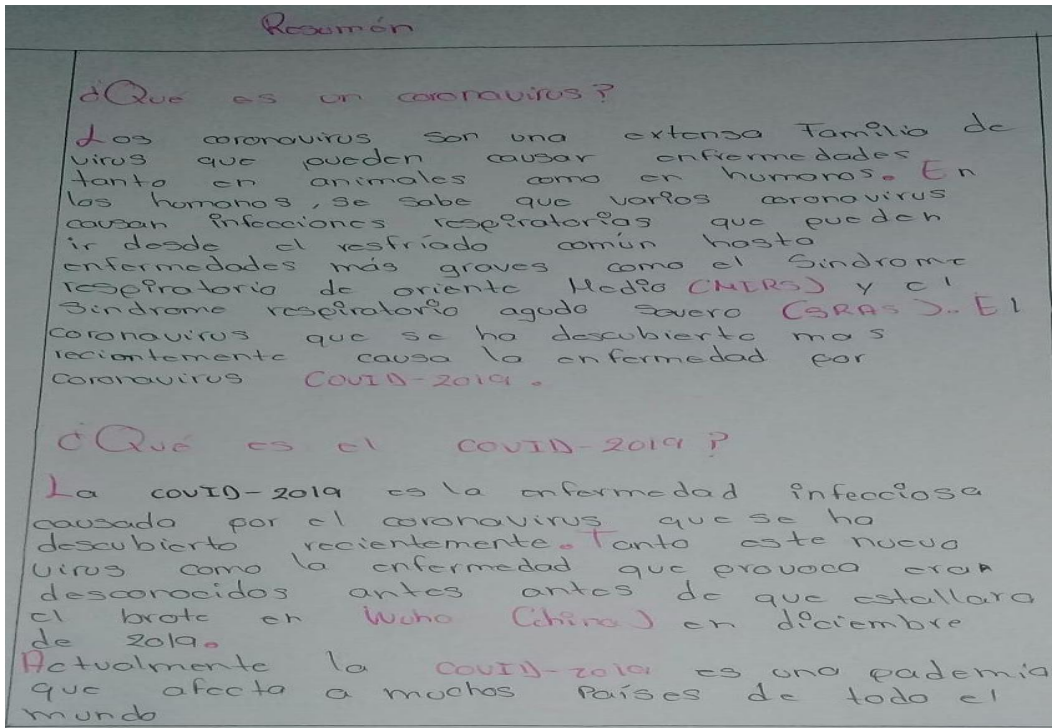 Resumén
¿Qué es un coronavirus?
Los coronavirus son una extensa familia de
virus que pueden causar enfiermedades
tanto en animales como en humanos. En
los humanos, se sabe que varios coronavirus
causan infecciones respiratorias que pueden
ir desde el resfriado común hasta
enfermedades más graves como el Sindrome
respiratorio de oriente Medio (MERS) y el
Sindrome respiratorio agudo severo (SRAS).. El
coronavirus que se ha descubierto mas
recientemente causa la enfermedad por
coronavirus COVID-2019.
¿Qué es el COVID-2019?
La COVID-2019 es la enfermedad infecciosa
causada por el coronavirus que se ha
descubierto recientemente. Tanto este nuevo
virus como la enfermedad que provoca eran
desconocidos antes antes de que estallara
el brote en Wuha (china) en diciembre
de 2019.
Actualmente la COVID-2019 es una pademia
que afecta a muchos Países de todo el
mundo